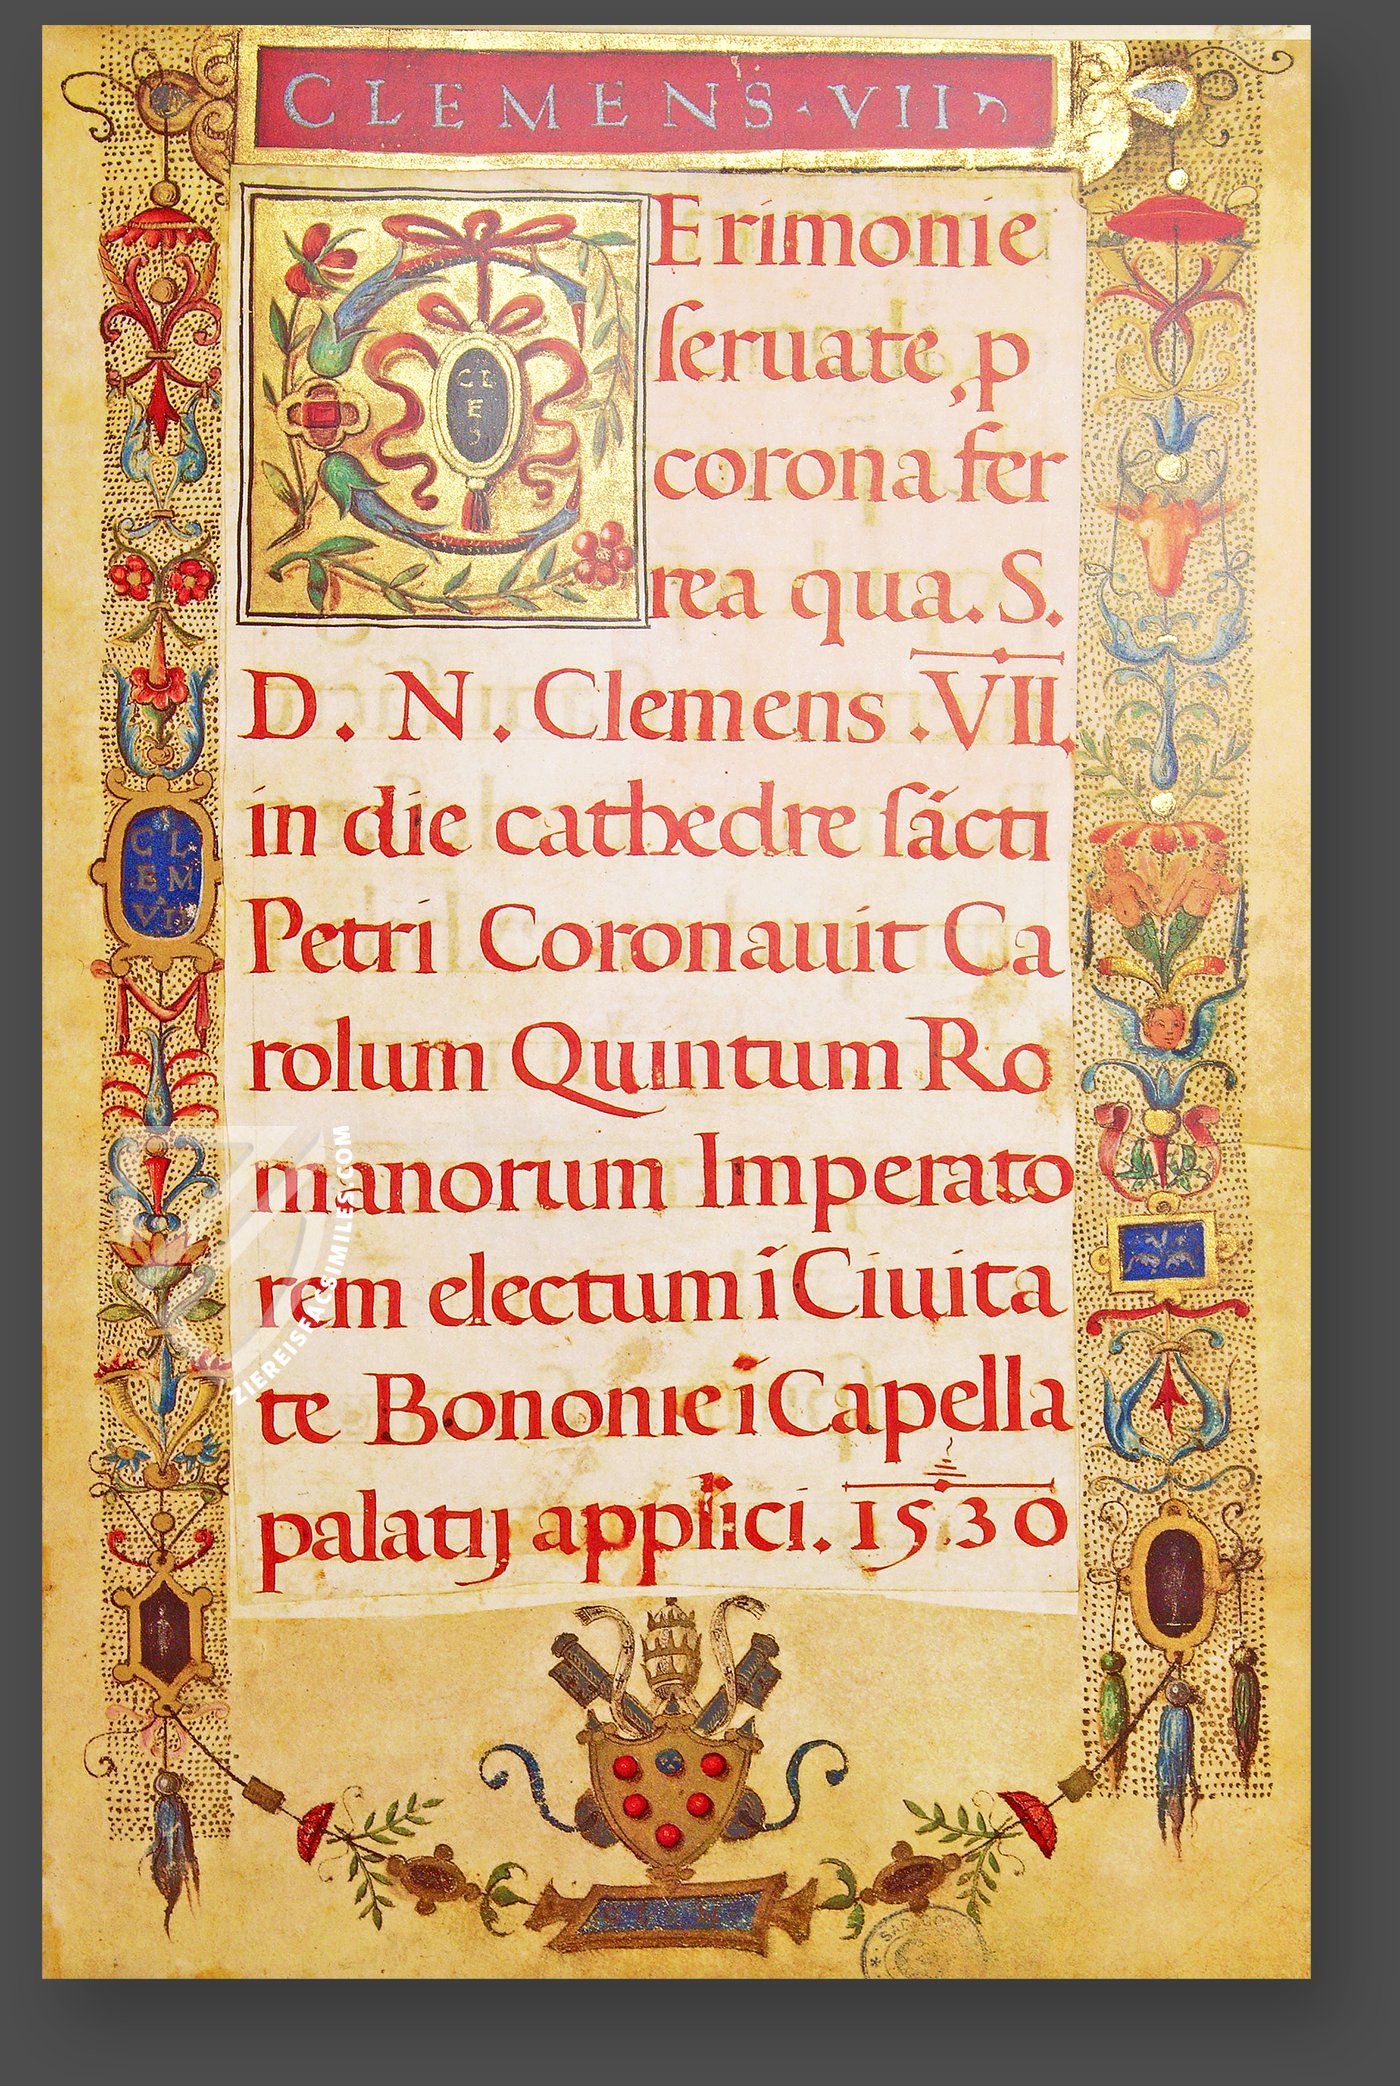 CLEMENS·VII
CERimonie
seruate, p
corona fer
rea qua. S.
D. N. Clemens .VII.
in die cathedre sācti
Petri Coronauit Ca
rolum Quintum Ro
manorum Imperato
rem electum ī Ciuita
te Bononie ī Capella
palatij applici. 1530
CL
E
CL
EM
VII
ZIEREISFACSIMILES.COM